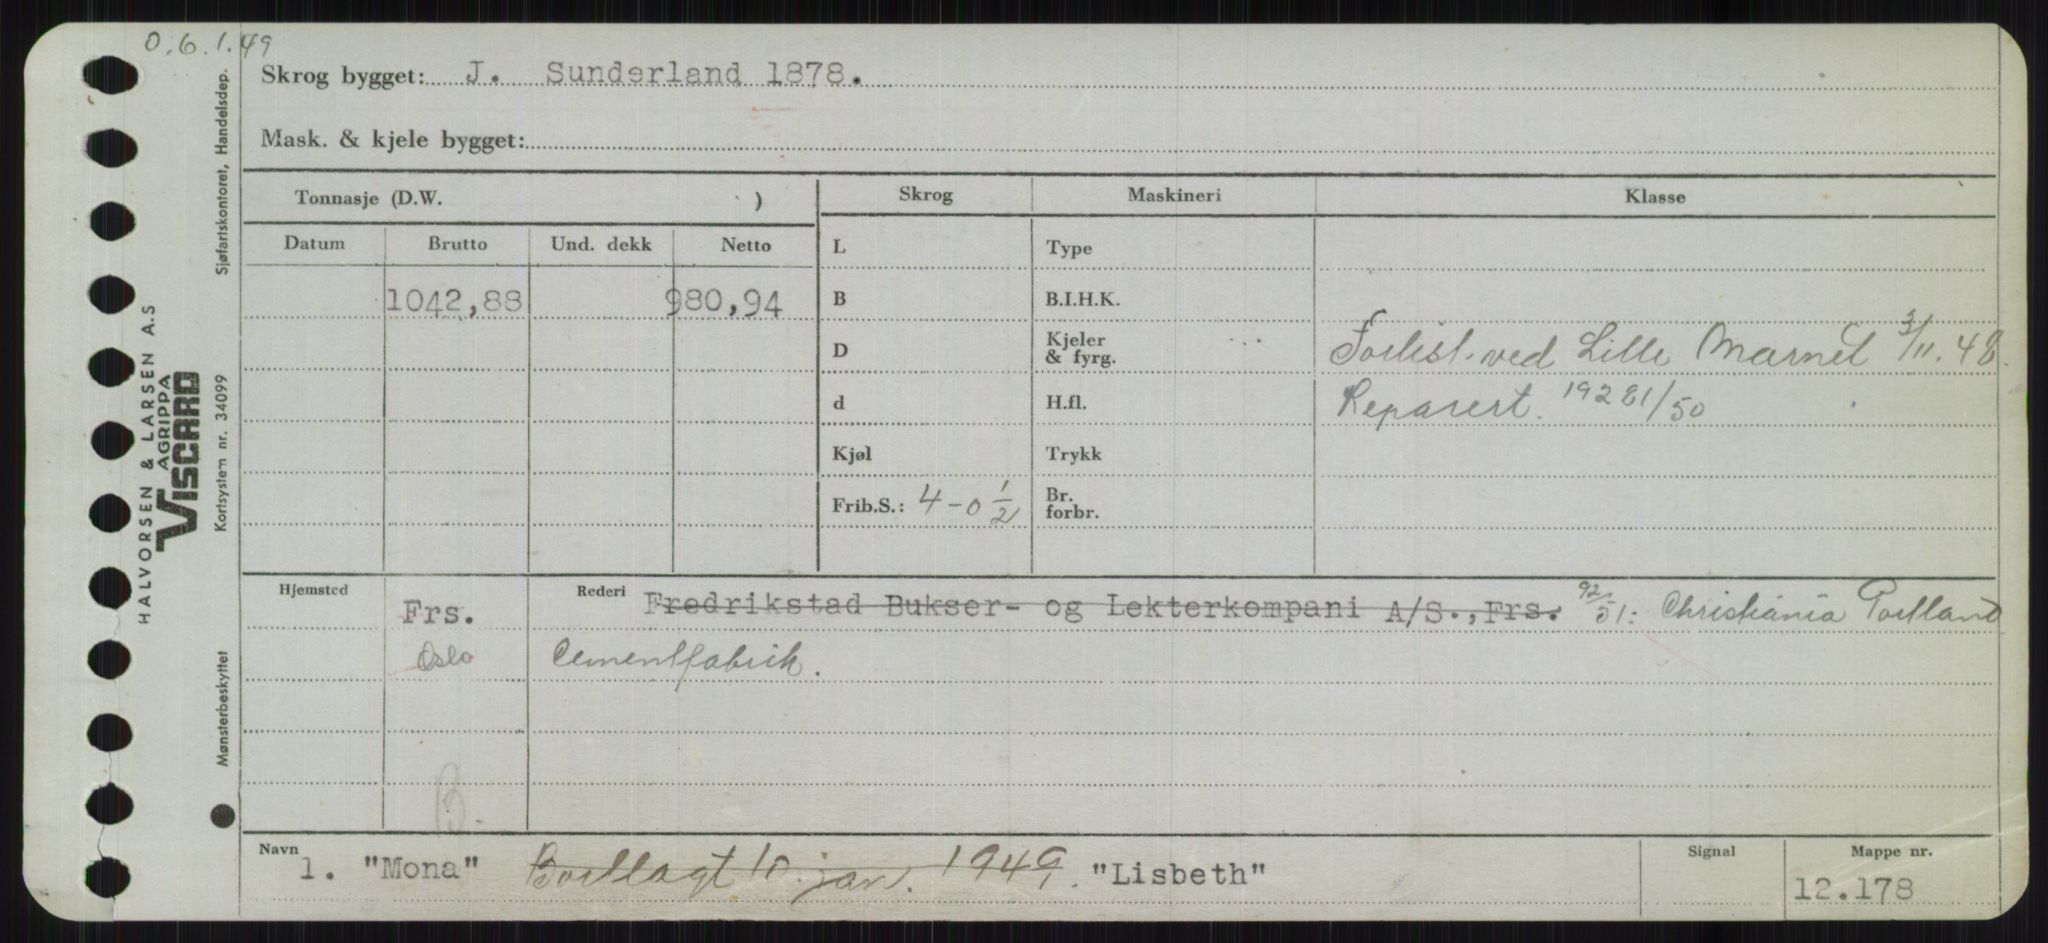 O. 6. 1. 49
Skrog bygget: J. Sunderland 1878.
Mask. & kjele bygget:
Tonnasje (D.W. ) Skrog Maskineri Klasse
Datum Brutto Und. dekk Netto L Type
1042,88 980,94 B B.I.H.K.
D Kjeler & fyrg. Forlist ved Lille 3/11. 48
d H.fl. Reparert.
Kjøl Trykk
Frib.S.: 4-0 1/2 Br. forbr.
Hjemsted Frs. Rederi Fredrikstad Bukser- og Lekterkompani A/S., Frs. 51: Christiania Portland
Oslo Cementfabrik.
B.
Navn 1. "Mona" Bortlagt 10. jan. 1949. "Lisbeth" Signal Mappe nr. 12.178
HALVORSEN & LARSEN A.S
AGRIPPA
VISCARD
Sjøfartskontoret, Handelsdep.
Kortsystem nr. 34099
Mønsterbeskyttet